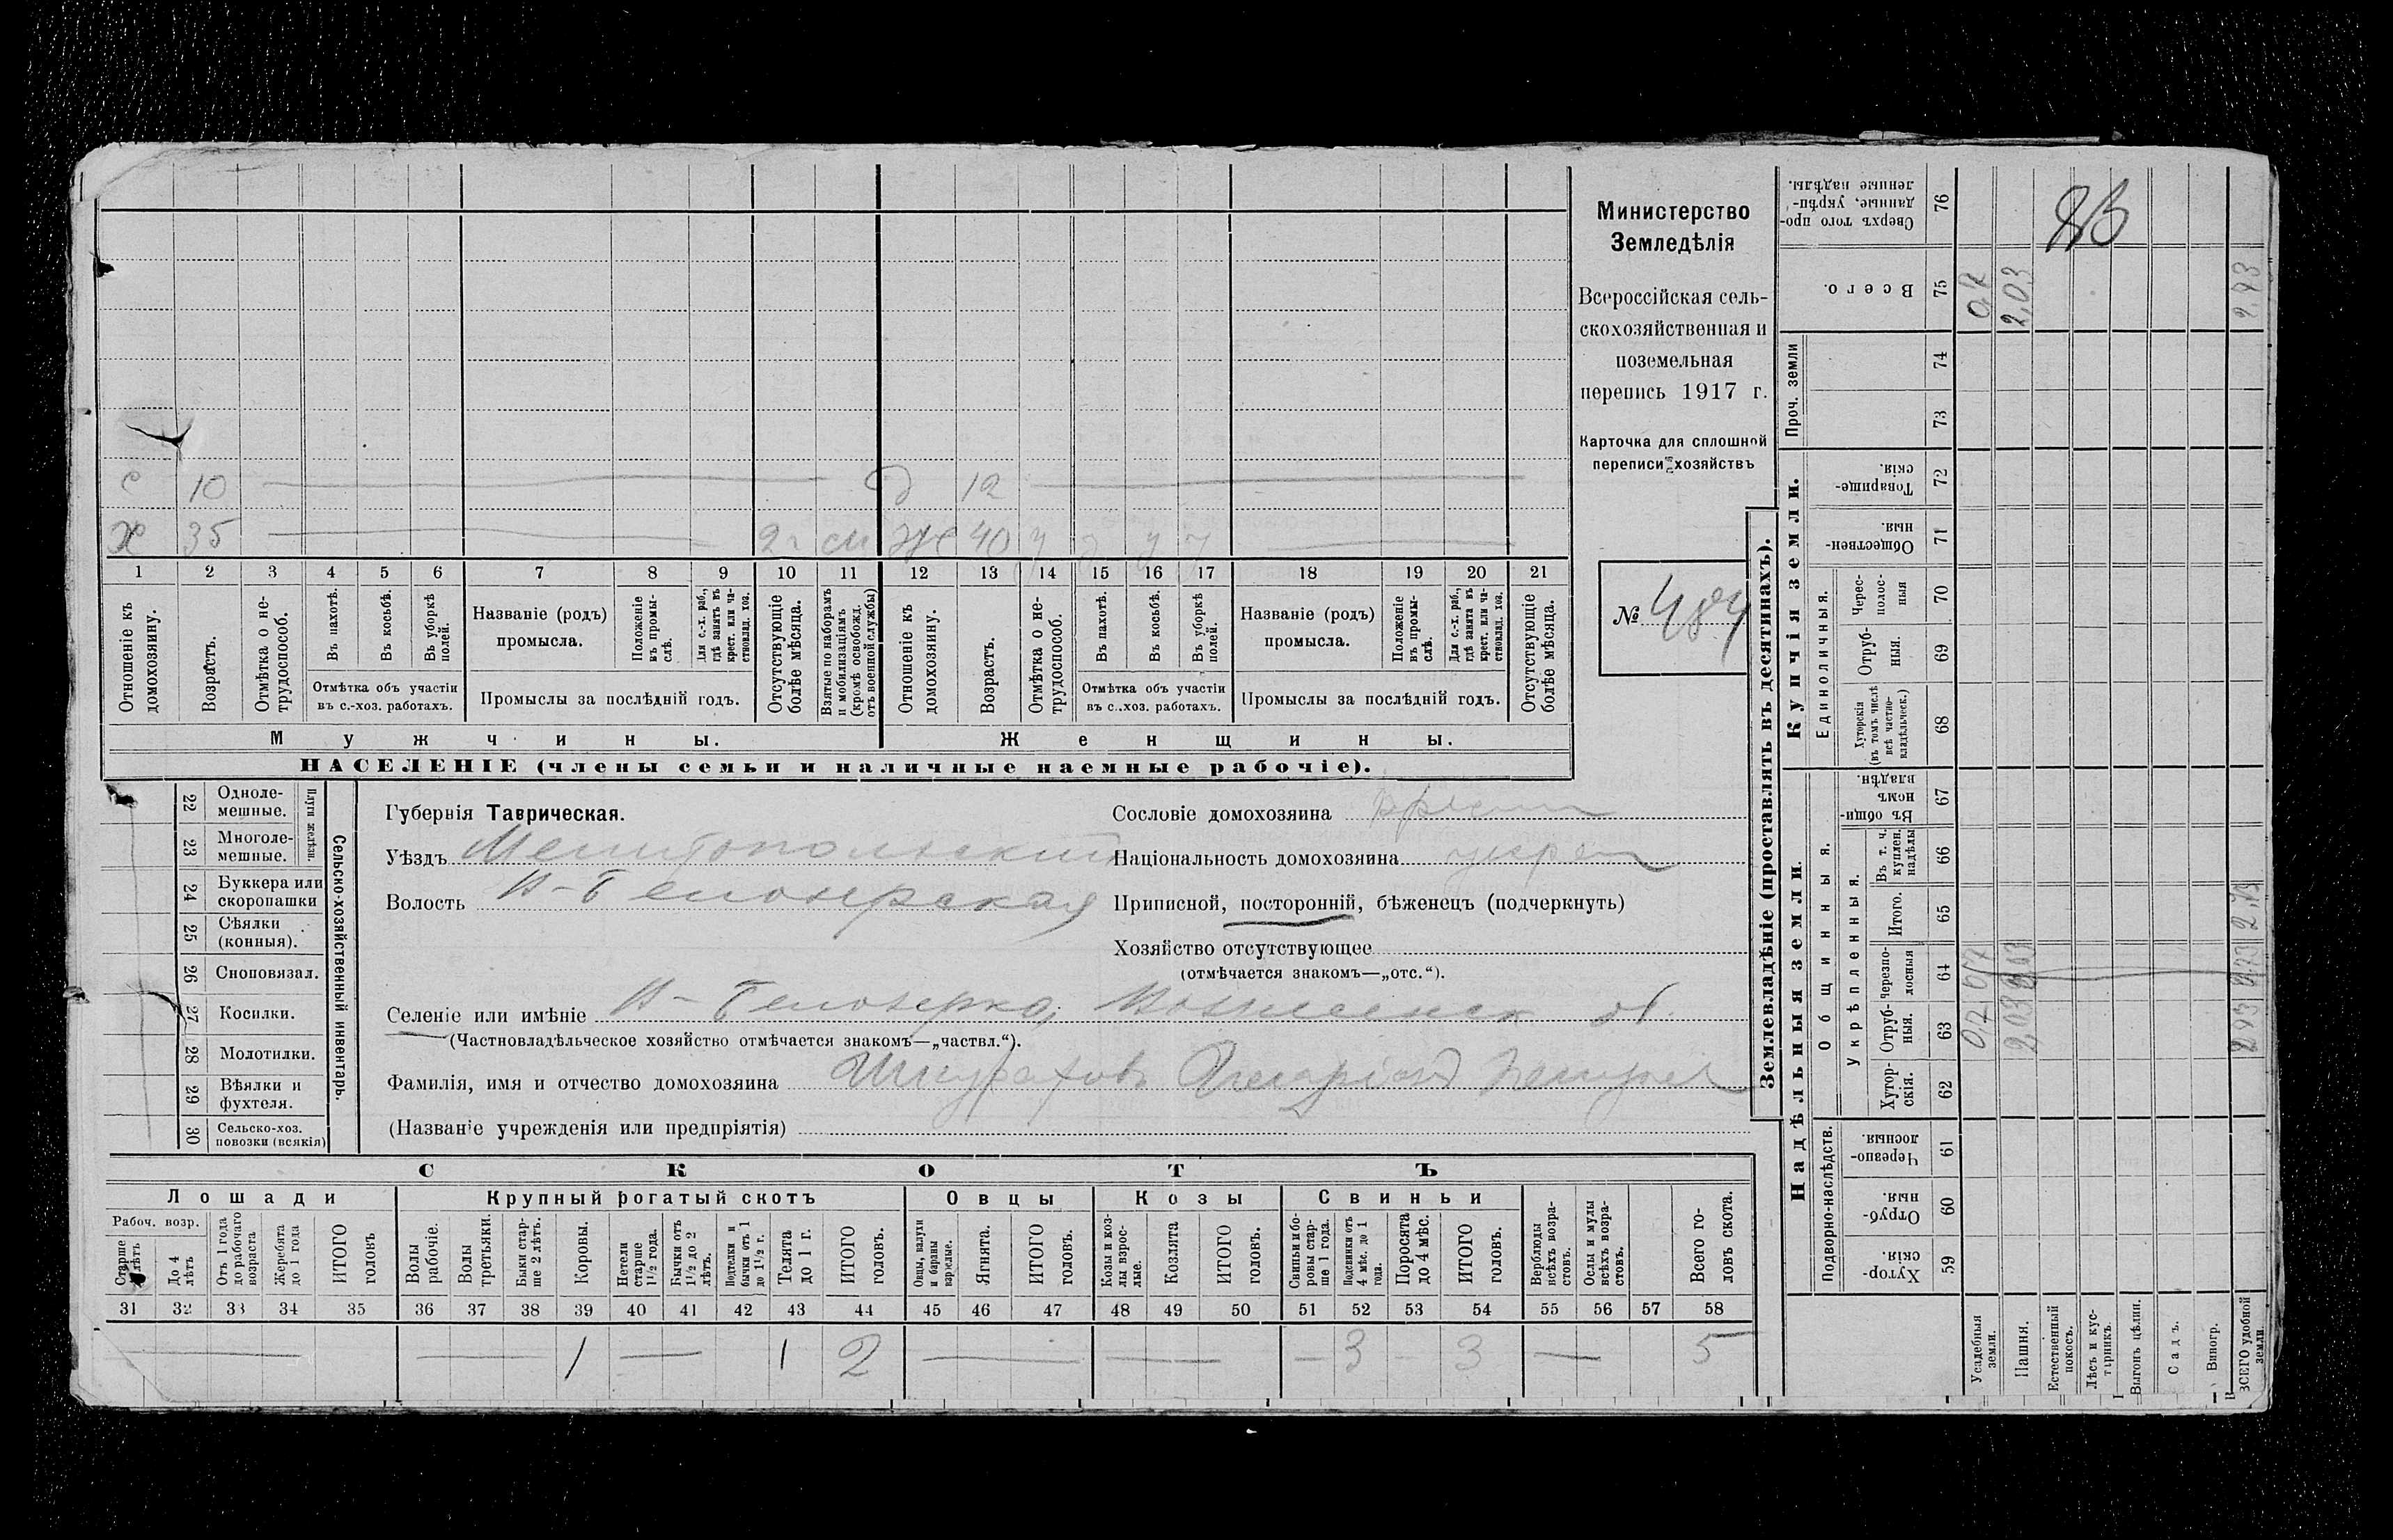 Министерство
Земледѣлія
Всероссійская сель-
скохозяйственная и
поземельная
перепись 1917 г.
Карточка для сплошной
переписи хозяйствъ
№ 484
с 10 д 12
х 35 2 г см ж 40
1 2 3 4 5 6 7 8 9 10 11 12 13 14 15 16 17 18 19 20 21
Отношеніе къ домохозяину.
Возрастъ.
Отмѣтка о не-трудоспособ.
Въ пахотѣ.
Въ косьбѣ.
Въ уборкѣ полей.
Отмѣтка объ участіи
въ с.-хоз. работахъ.
Названіе (родъ)
промысла.
Положеніе въ промы-слѣ.
Для с.-х. раб., гдѣ занятъ въ крест. или ча-стновлад. хоз.
Промыслы за послѣдній годъ.
Отсутствующіе болѣе мѣсяца.
Взятые по наборамъ и мобилизаціямъ (кромѣ освобожд. отъ военной службы)
Отношеніе къ домохозяину.
Возрастъ.
Отмѣтка о не-трудоспособ.
Въ пахотѣ.
Въ косьбѣ.
Въ уборкѣ полей.
Отмѣтка объ участіи
въ с.-хоз. работахъ.
Названіе (родъ)
промысла.
Положеніе въ промы-слѣ.
Для с.-х. раб., гдѣ занята въ крест. или ча-стновлад. хоз.
Промыслы за послѣдній годъ.
Отсутствующіе болѣе мѣсяца.
Мужчины. Женщины.
НАСЕЛЕНІЕ (члены семьи и наличные наемные рабочіе).
Сельско-хозяйственный инвентарь.
Плуги желѣзн.
22 Одноле-мешные.
23 Многоле-мешные.
24 Буккера или скоропашки
25 Сѣялки (конныя).
26 Сноповязал.
27 Косилки.
28 Молотилки.
29 Вѣялки и фухтеля.
30 Сельско-хоз. повозки (всякія)
Губернія Таврическая.
Уѣздъ Мелитопольский
Волость Н-Белозерская
Сословіе домохозяина крест
Національность домохозяина укра
Приписной, посторонній, бѣженецъ (подчеркнуть)
Хозяйство отсутствующее
(отмѣчается знакомъ—„отс.“).
Селеніе или имѣніе Н-Белозерка, Вознесенск об.
(Частновладѣльческое хозяйство отмѣчается знакомъ—„частвл.“).
Фамилія, имя и отчество домохозяина
(Названіе учрежденія или предпріятія)
СКОТЪ
Лошади Крупный рогатый скотъ Овцы Козы Свиньи
Рабоч. возр.
Старше 4 лѣтъ
До 4 лѣтъ
Отъ 1 года до рабочаго возраста
Жеребята до 1 года
ИТОГО головъ
Волы рабочіе.
Волы третьяки.
Быки стар-ше 2 лѣтъ.
Коровы.
Нетели старше 1½ года.
Бычки отъ 1½ до 2 лѣтъ.
Подтелки и бычки отъ 1 до 1½ г.
Телята до 1 г.
ИТОГО головъ.
Овцы, валухи и бараны взрослые.
Ягнята.
ИТОГО головъ.
Козы и коз-лы взрос-лые.
Козлята
ИТОГО головъ.
Свиньи и бо-ровы стар-ше 1 года.
Подсвинки отъ 4 мѣс. до 1 года.
Поросята до 4 мѣс.
ИТОГО головъ.
Верблюды всѣхъ возра-стовъ.
Ослы и мулы всѣхъ возра-стовъ.
Всего го-ловъ скота.
31 32 33 34 35 36 37 38 39 40 41 42 43 44 45 46 47 48 49 50 51 52 53 54 55 56 57 58
1 1 2 3 3 5
Землевладѣніе (проставлять въ десятинахъ).
Надѣльныя земли.
Купчія земли.
Проч. земли
Подворно-наслѣдств.
Общинныя.
Укрѣпленныя.
Единоличныя.
59 Хутор-скія.
60 Отруб-ныя.
61 Черезпо-лосныя.
62 Хутор-скія.
63 Отруб-ныя.
64 Черезпо-лосныя
65 Итого.
66 Въ т. ч. куплен. надѣлы
67 Въ общи-номъ владѣн.
68 Хуторскія (въ томъ числѣ всѣ частно-владѣльческ.)
69 Отруб-ныя.
70 Черес-полос-ныя
71 Обществен-ныя.
72 Товарище-скія.
73
74
75 Всего.
76 Сверхъ того про-данные, укрѣп-ленные надѣлы.
Усадебныя земли.
Пашня. 2,03
Естественный покосъ.
Лѣсъ и кус-тарникъ.
Выгонъ цѣлин.
Садъ.
Виногр.
ВСЕГО удобной земли.